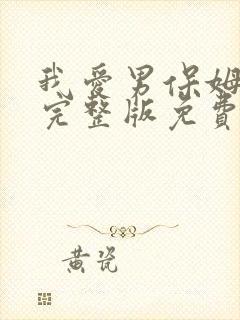 我爱男保姆
完整版免费
黄瓷